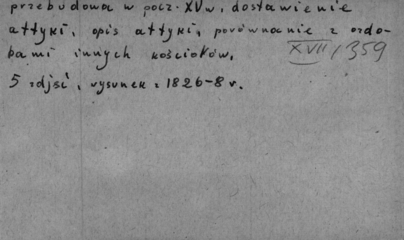 przebudowa w pocz. XV w, dostawienie
attyki, opis attyki, porównanie z ozdo-
bami innych kościołów,
XVII/359
5 zdjęć, rysunek z 1826-8 r.